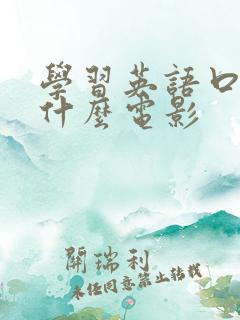 學習英語口
什麼電影
開瑞利
未任同意禁止转载